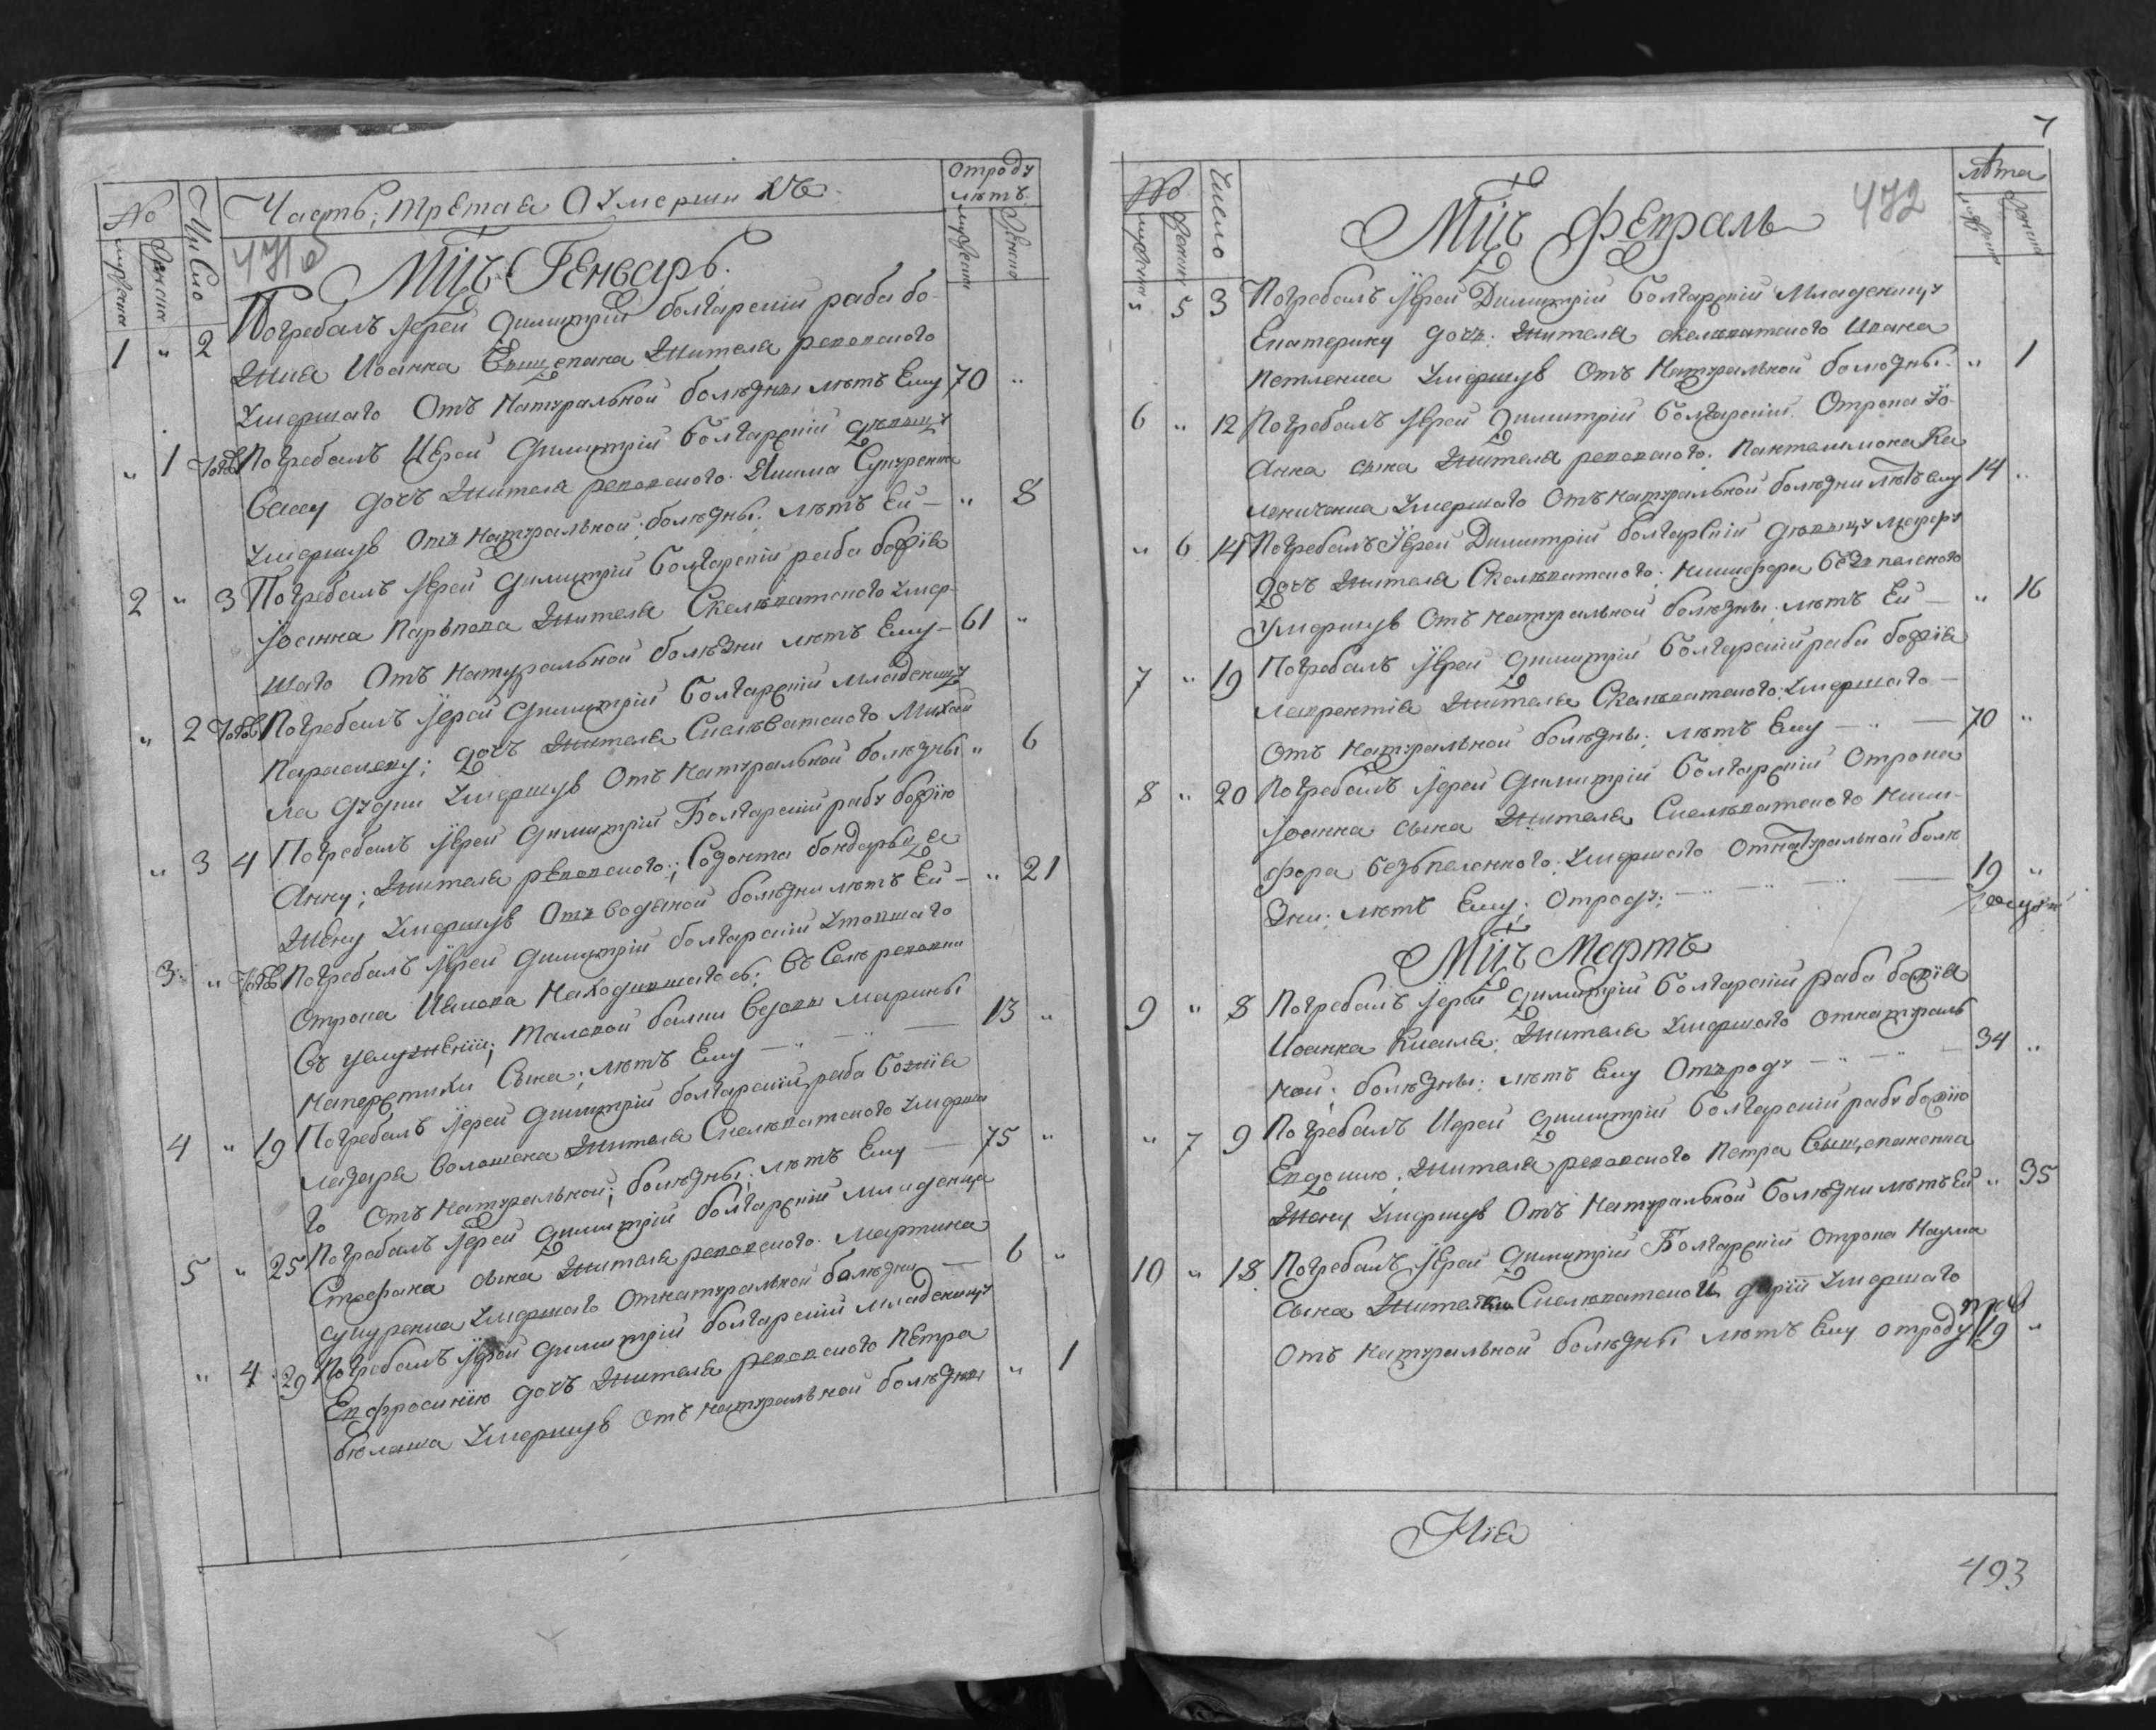 Часть, третая О Умерши хъ
Отроду лѣтъ
No
Число
мужеска
женска
471б
Мцъ Генварь
1 " 2 Погребалъ Іерей Димитрій болгарскій раба бо-
жия Иоанна Жителя реповского
Умершаго Отъ Натуральной болѣзны лѣтъ Ему 70 "
" 1 Погребалъ Иерей Димитрій Болгарскій дѣвицу
Васу дочъ Жителя реповского
Умершую Отъ Натуральной; болѣзны; лѣтъ Ей — " 8
2 " 3 Погребалъ Іерей Димитрій Болгарскій раба божія
Іоанна Жителя Скелѣватского Умер-
шаго Отъ Натуральной болѣзни лѣтъ Ему — 61 "
" 2 Погребалъ Іерей Димитрій Болгарскій младеницу
Параскеву; дочъ Жителя Скелѣватского Михай
ла Умершую Отъ Натуральной болѣзны " 6
" 3 4 Погребалъ Іерей Димитрій Болгарскій рабу божію
Анну; Жителя реповского; бондарьца
Жену Умершую Отъ водяной болѣзни лѣтъ Ей — " 21
3 " Погребалъ Іерей Димитрій болгарскій Утопшаго
Отрока Находившагось; въ Селѣ реповки
въ услуженіи; Марины
Сына; лѣтъ Ему — " — 13 "
4 " 19 Погребалъ Іерей Димитрій болгарскій раба Божія
Лазаря Волошена Жителя Скелѣватского Умерша
го Отъ Натуральной; болѣзны; лѣтъ Ему — 75 "
5 " 25 Погребалъ Іерей Димитрій болгарскій младенца
Стефана сына Жителя реповского Мартина
Умершаго Отнатуральной болѣзни — 6 "
" 4 29 Погребалъ Іерей Димитрій болгарскій младеницу
Евфросинію дочъ Жителя реповского Петра
Умершую Отъ натуральной болѣзны " 1
7
No
Число
лѣта
мужеска
женска
472
Мцъ февраль
" 5 3 Погребалъ Іерей Димитрій Болгарскій Младеницу
Екатерину дочъ; Жителя скелѣватского Ивана
Умершую Отъ Натуральной болѣзны " 1
6 " 12 Погребалъ Іерей Димитрій Болгарскій Отрока Іо-
анна сына Жителя реповского Пантелимона Ка
Умершаго Отъ натуральной болѣзни лѣтъ ему 14 "
" 6 14 Погребалъ Іерей Димитрій болгарскій дѣвицу
дочъ Жителя Скелѣватского; Никифора Безъпаленого
Умершую Отъ натуральной болѣзны лѣтъ Ей — " 16
7 " 19 Погребалъ Іерей Димитрій Болгарскій раба божія
Лаврентія Жителя Скелѣватского; Умершаго —
Отъ Натуральной болѣзны; лѣтъ Ему — " — 70 "
8 " 20 Погребалъ Іерей Димитрій Болгарскій Отрока
Іоанна сына Жителя Скелѣватского Ники-
фора Безъпаленного; Умершаго Отнатуральной болѣ
зни; лѣтъ Ему; Отроду; — 19 "
Мцъ Мартъ
9 " 8 Погребалъ Іерей Димитрій Болгарскій раба божія
Иоанна Кисиля; Жителя Умершаго Отнатураль
ной; болѣзны; лѣтъ Ему Отъроду — " — " — 34 "
" 7 9 Погребалъ Иерей Димитрій Болгарскій рабу божію
Евдокию; Жителя реповского Петра
Жену Умершую Отъ Натуральной Болѣзни лѣтъ Ей " 35
10 " 18 Погребалъ Іерей Димитрій Болгарскій Отрока Наума
сына Жителки Скелѣватской Дарїи Умершаго
Отъ Натуральной болѣзны лѣтъ Ему отроду 19 "
493